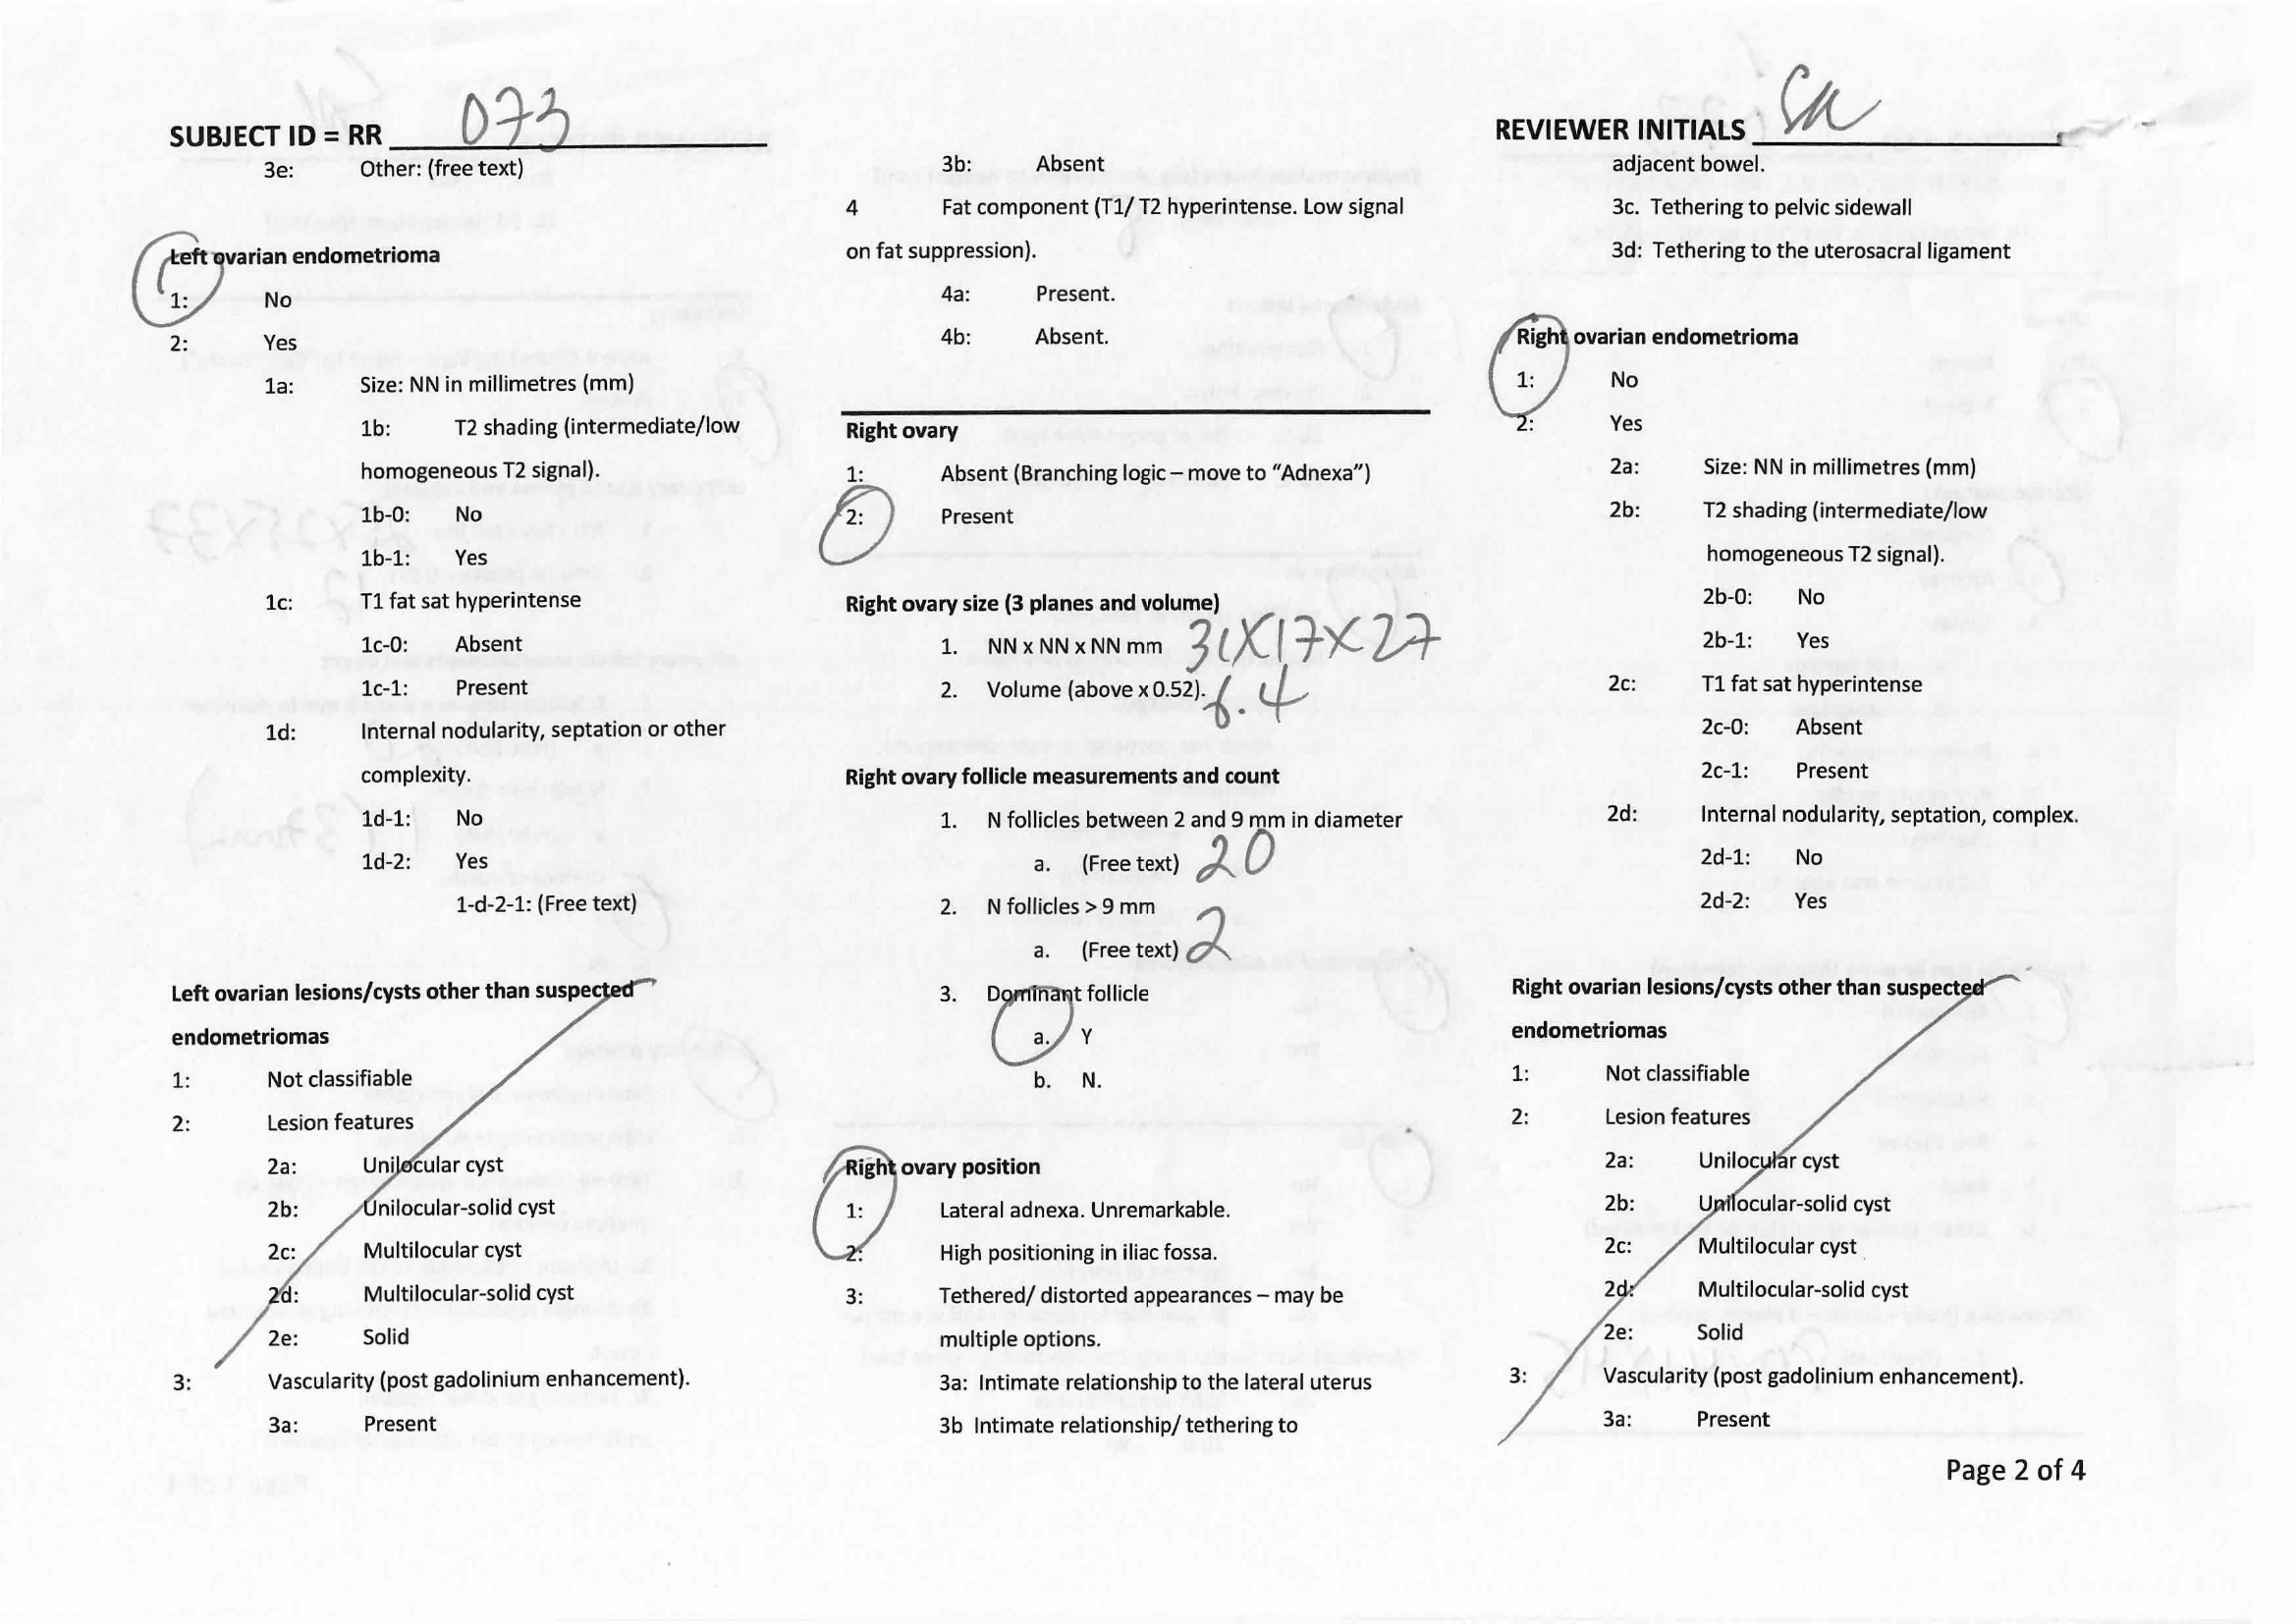 SUBJECT ID = RR 073
3e: Other: (free text)
Left ovarian endometrioma
1: No
2: Yes
1a: Size: NN in millimetres (mm)
1b: T2 shading (intermediate/low
homogeneous T2 signal).
1b-0: No
1b-1: Yes
1c: T1 fat sat hyperintense
1c-0: Absent
1c-1: Present
1d: Internal nodularity, septation or other
complexity.
1d-1: No
1d-2: Yes
1-d-2-1: (Free text)
Left ovarian lesions/cysts other than suspected
endometriomas
1: Not classifiable
2: Lesion features
2a: Unilocular cyst
2b: Unilocular-solid cyst
2c: Multilocular cyst
2d: Multilocular-solid cyst
2e: Solid
3: Vascularity (post gadolinium enhancement).
3a: Present
3b: Absent
4 Fat component (T1/ T2 hyperintense. Low signal
on fat suppression).
4a: Present.
4b: Absent.
Right ovary
1: Absent (Branching logic – move to “Adnexa”)
2: Present
Right ovary size (3 planes and volume)
1. NN x NN x NN mm 31X17X27
2. Volume (above x 0.52). 6.4
Right ovary follicle measurements and count
1. N follicles between 2 and 9 mm in diameter
a. (Free text) 20
2. N follicles > 9 mm
a. (Free text) 2
3. Dominant follicle
a. Y
b. N.
Right ovary position
1: Lateral adnexa. Unremarkable.
2: High positioning in iliac fossa.
3: Tethered/ distorted appearances – may be
multiple options.
3a: Intimate relationship to the lateral uterus
3b Intimate relationship/ tethering to
REVIEWER INITIALS
adjacent bowel.
3c. Tethering to pelvic sidewall
3d: Tethering to the uterosacral ligament
Right ovarian endometrioma
1: No
2: Yes
2a: Size: NN in millimetres (mm)
2b: T2 shading (intermediate/low
homogeneous T2 signal).
2b-0: No
2b-1: Yes
2c: T1 fat sat hyperintense
2c-0: Absent
2c-1: Present
2d: Internal nodularity, septation, complex.
2d-1: No
2d-2: Yes
Right ovarian lesions/cysts other than suspected
endometriomas
1: Not classifiable
2: Lesion features
2a: Unilocular cyst
2b: Unilocular-solid cyst
2c: Multilocular cyst
2d: Multilocular-solid cyst
2e: Solid
3: Vascularity (post gadolinium enhancement).
3a: Present
Page 2 of 4